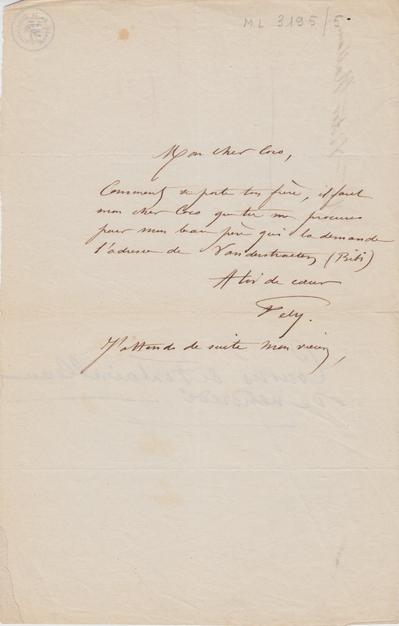 ML 3195/5
Mon cher Coco,
Comment se porte ton frère, il faut
mon cher Coco que tu me procures
pour mon beau père qui la demande
l'adresse de Vanderstraeten (Bibi)
A toi de cœur
Fély.
J'attends de suite mon vieux,